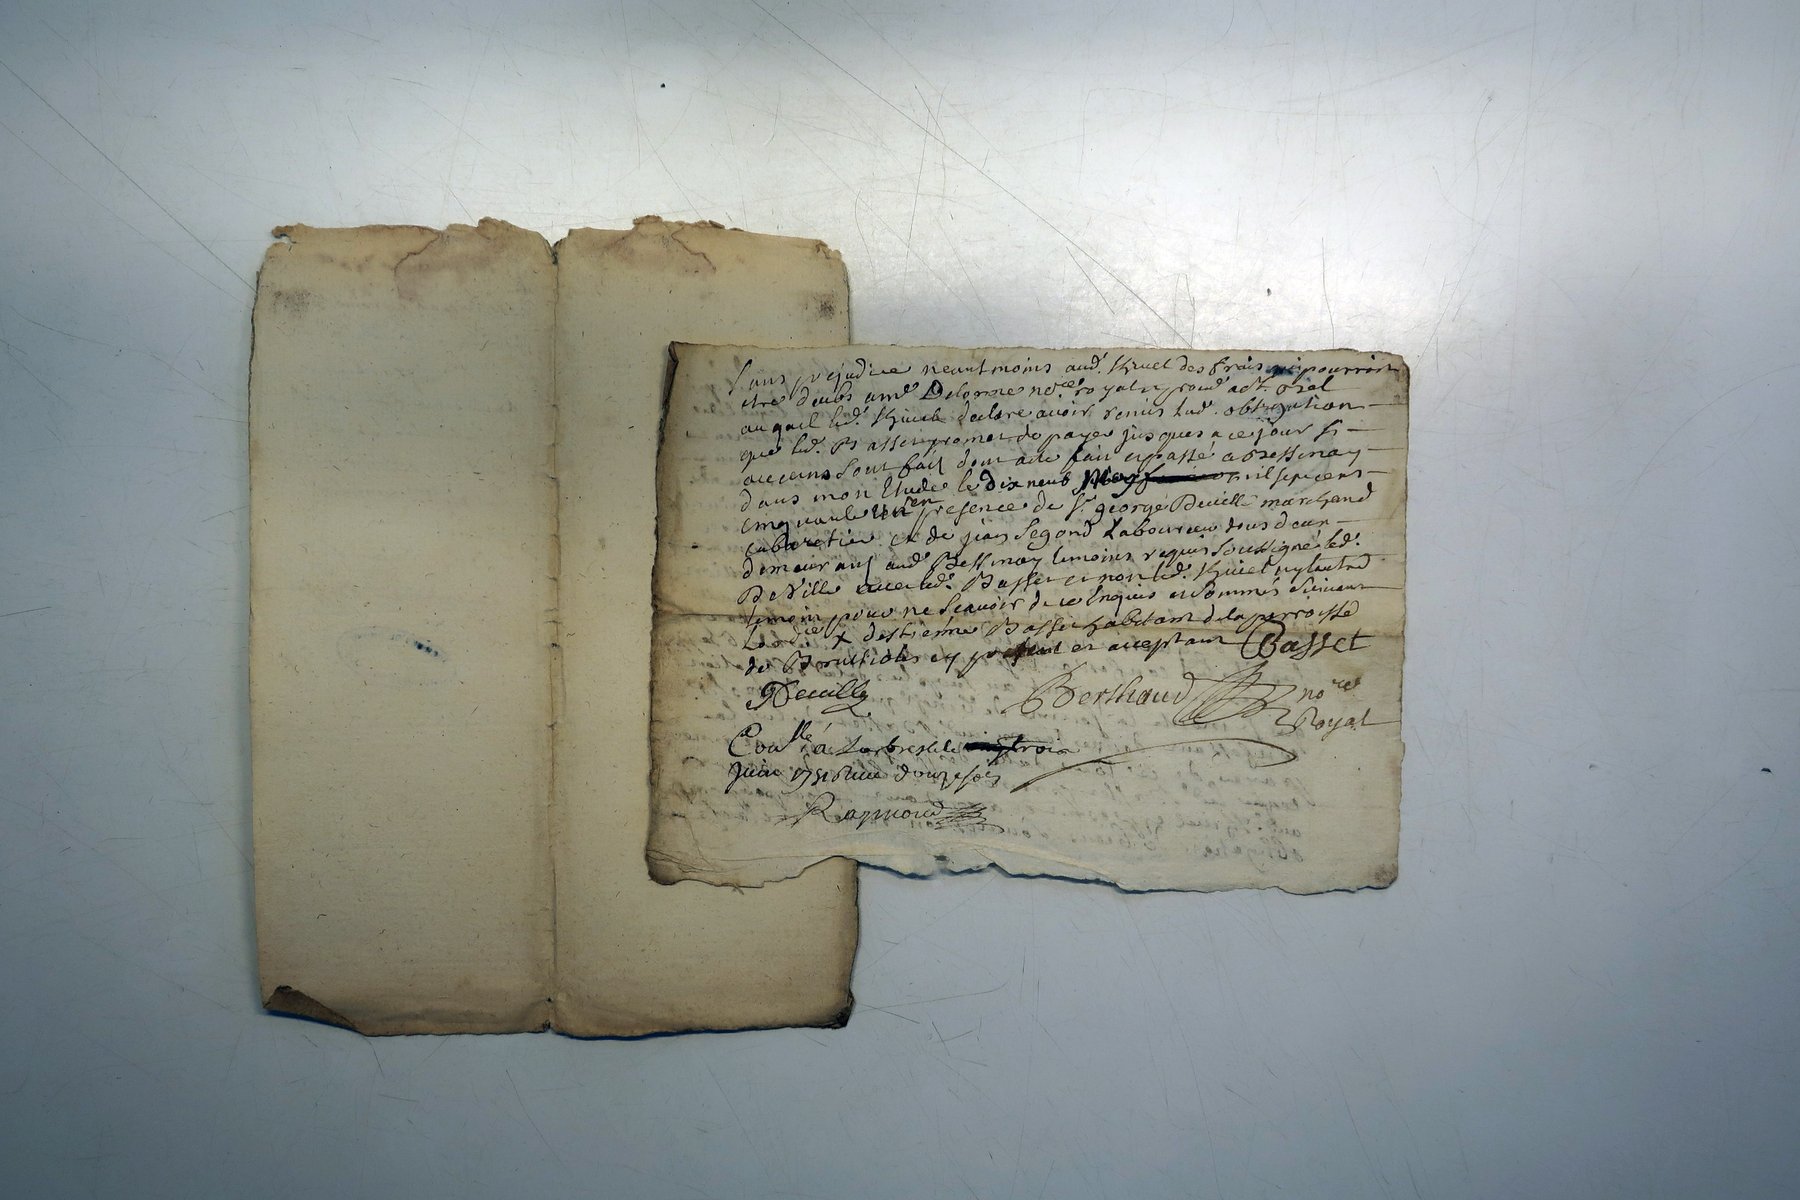 Sans prejudice neantmoins aud. Kivet des frais qui pourroit
etre deubs a me Delorme nore royal et proud. act. oret
auquel led. Kivet declare avoir remis lad. obligation
que led. Basset promet de payer jusques a ce jour si
aucuns sont fait dont acte fait et passé a Bessenay
dans mon Etude le dix neuf May mil sept cens
cinquante un en presence de Sr. george Deville marchand
cabaretier et de jean Segond Laboureur tous deux
demeurant aud. Bessenay temoins requis soussigné led.
DeVille avec led. Basset et non led. Kivet ny l'autre
temoin pour ne scavoir de ce Enquis et sommés suivant
Lordce x destienne Basset habitant de la parroisse
de Brussioles cy present et acceptant Basset
Deville Berthaud nore
Royal
Conllé a Larbresle le trois
Juin 1751 Reçu douze sols
Raymond